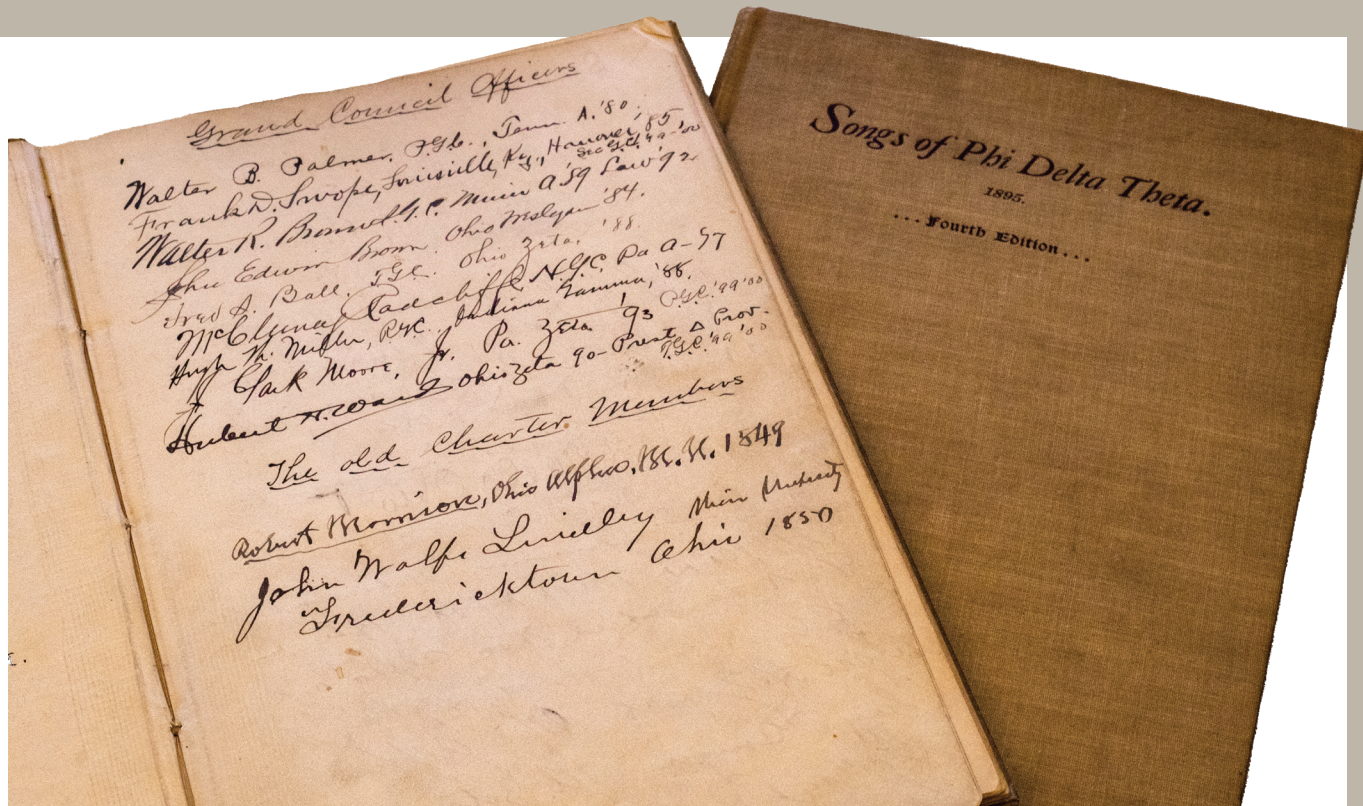 Grand Council Officers
Walter B. Palmer, P.G.C., Tenn A. '80.
Frank D. Swope, Louisville, Ky., Hanover, '85,
Sec G.C. '99-'00
Walter R. Brown G.C. Minn A '89 Law '92
John Edwin Brown. Ohio Wesleyan '84.
Fred S. Ball. T.G.C. Ohio Zeta, '88.
McCluney Radcliffe N.G.C. Pa A-'77
Hugh Th. Miller, R.G.C. Indiana Gamma, '88.
J. Clark Moore, Jr. Pa. Zeta '93 P.G.C. '99 '00
Hubert H. Ward Ohio Zeta 90- Prest Δ Prov.
T.G.C. '99 '00
The old Charter Members
Robert Morrison, Ohio Alpha, 1849
John Wolfe Lindley Miami University
Fredericktown Ohio 1850
Songs of Phi Delta Theta.
1895.
...Fourth Edition...